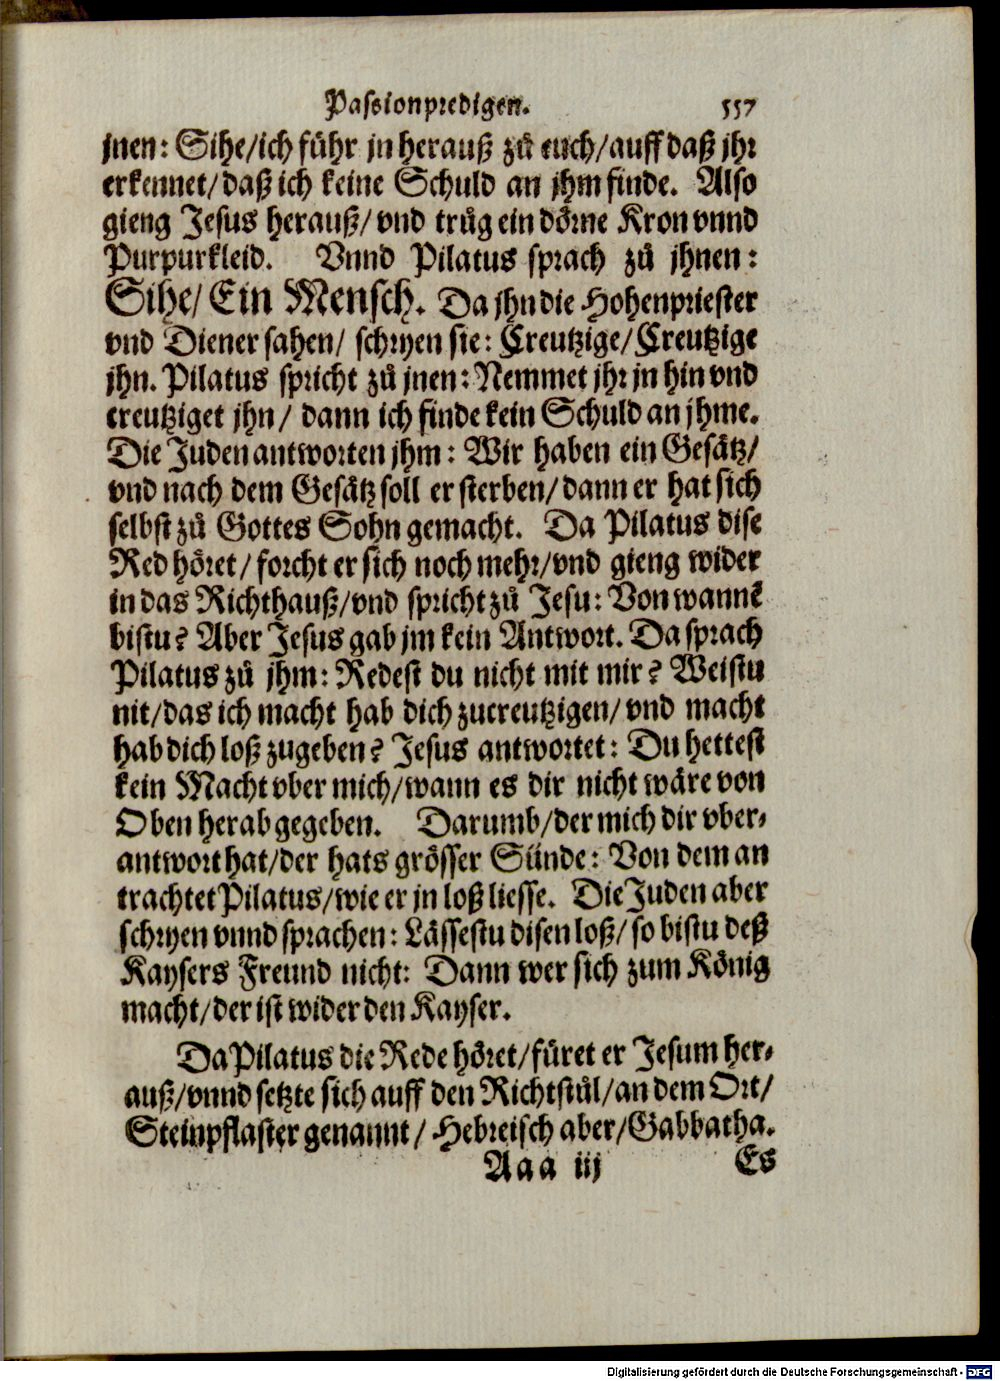 Passionpredigen. 557
jnen: Sihe/ich führ jn herauß zů euch/auff daß jhr
erkennet/daß ich keine Schuld an jhm finde. Also
gieng Jesus herauß/ vnd trůg ein dörne Kron vnnd
Purpurkleid. Vnnd Pilatus sprach zů jhnen:
Sihe/ Ein Mensch. Da jhn die Hohenpriester
vnd Diener sahen/ schryen sie: Creutzige/Creutzige
jhn. Pilatus spricht zů jnen: Nemmet jhr jn hin vnd
creutziget jhn/ dann ich finde kein Schuld an jhme.
Die Juden antworten jhm: Wir haben ein Gesätz/
vnd nach dem Gesätz soll er sterben/dann er hat sich
selbst zů Gottes Sohn gemacht. Da Pilatus dise
Red höret/ forcht er sich noch mehr/vnd gieng wider
in das Richthauß/vnd spricht zů Jesu: Von wannē
bistu? Aber Jesus gab jm kein Antwort. Da sprach
Pilatus zů jhm: Redest du nicht mit mir? Weistu
nit/das ich macht hab dich zucreutzigen/ vnd macht
hab dich loß zugeben? Jesus antwortet: Du hettest
kein Macht vber mich/wann es dir nicht wäre von
Oben herab gegeben. Darumb/der mich dir vber-
antwort hat/der hats grösser Sünde: Von dem an
trachtet Pilatus/wie er jn loß liesse. Die Juden aber
schryen vnnd sprachen: Lässestu disen loß/ so bistu deß
Kaysers Freund nicht: Dann wer sich zum König
macht/der ist wider den Kayser.
Da Pilatus die Rede höret/füret er Jesum her-
auß/vnnd setzte sich auff den Richtstůl/an dem Ort/
Steinpflaster genannt/ Hebreisch aber/Gabbatha.
Aaa iij Es
Digitalisierung gefördert durch die Deutsche Forschungsgemeinschaft - DFG